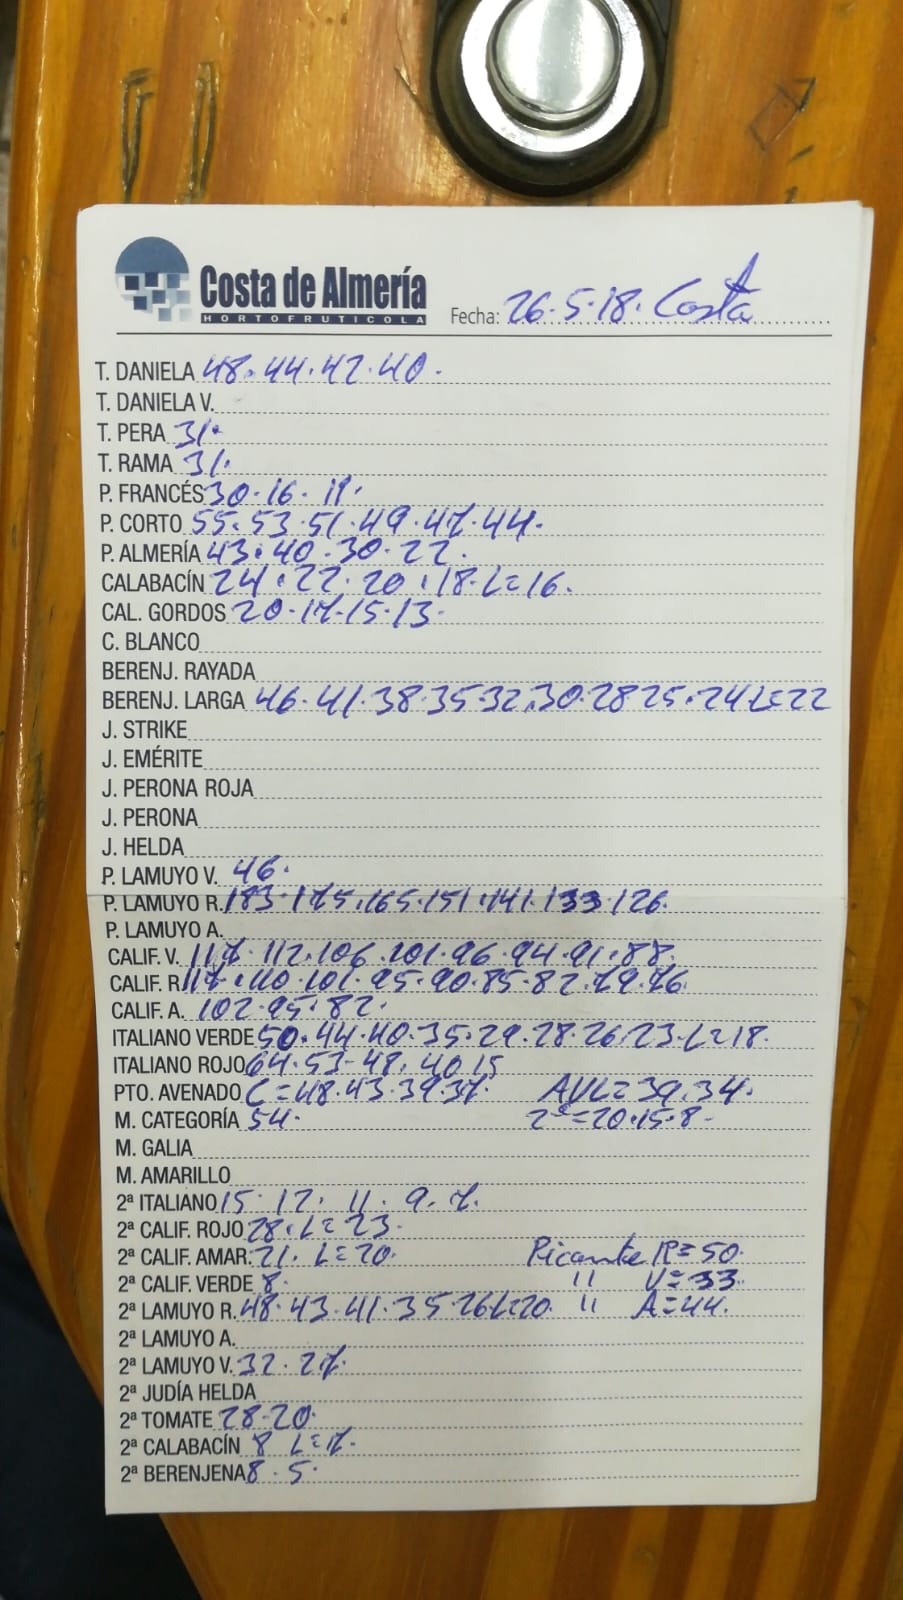 Costa de Almería
HORTOFRUTICOLA
Fecha: 26.5.18. Costa
T. DANIELA 48.44.42.40.
T. DANIELA V.
T. PERA 31.
T. RAMA 31.
P. FRANCÉS 30.16.11.
P. CORTO 55.53.51.49.47.44.
P. ALMERÍA 43.40.30.22.
CALABACÍN 24.22.20.18.L=16.
CAL. GORDOS 20.17.15.13.
C. BLANCO
BERENJ. RAYADA
BERENJ. LARGA 46.41.38.35.32.30.28 25.24 L=22
J. STRIKE
J. EMÉRITE
J. PERONA ROJA
J. PERONA
J. HELDA
P. LAMUYO V. 46.
P. LAMUYO R. 183.175.165.151.141.133.126.
P. LAMUYO A.
CALIF. V. 117.112.106.101.96.94.91.88.
CALIF. R. 117.110.101.95.90.85.82.79.76.
CALIF. A. 102.95.82.
ITALIANO VERDE 50.44.40.35.29.28.26.23.L=18.
ITALIANO ROJO 64.53-48.40 15
PTO. AVENADO C=48.43.39.37. AVL=39.34.
M. CATEGORÍA 54. 2ª=20.15.8.
M. GALIA
M. AMARILLO
2ª ITALIANO 15.12.11.9.7.
2ª CALIF. ROJO 28.L=23.
2ª CALIF. AMAR. 21.L=20. Picante R=50.
2ª CALIF. VERDE 8. " V=33.
2ª LAMUYO R. 48.43.41.35 26 L=20. " A=44.
2ª LAMUYO A.
2ª LAMUYO V. 32.27.
2ª JUDÍA HELDA
2ª TOMATE 28.20.
2ª CALABACÍN 8 L=7.
2ª BERENJENA 8.5.